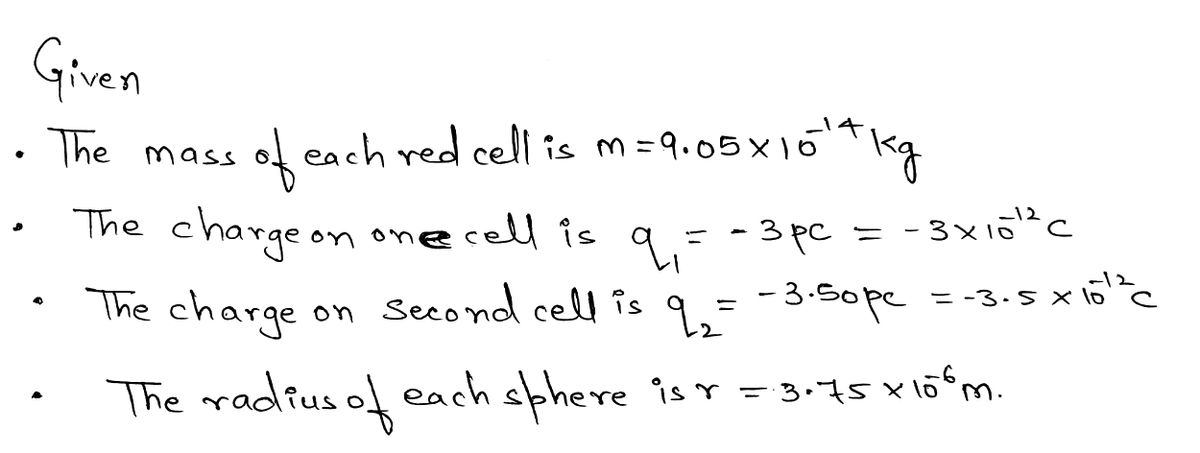 Given
• The mass of each red cell is m = 9.05 × 10⁻¹⁴ kg
• The charge on one cell is q₁ = - 3 pc = - 3 × 10⁻¹² C
• The charge on second cell is q₂ = - 3.50 pc = - 3.5 × 10⁻¹² C
• The radius of each sphere is r = 3.75 × 10⁻⁶ m.